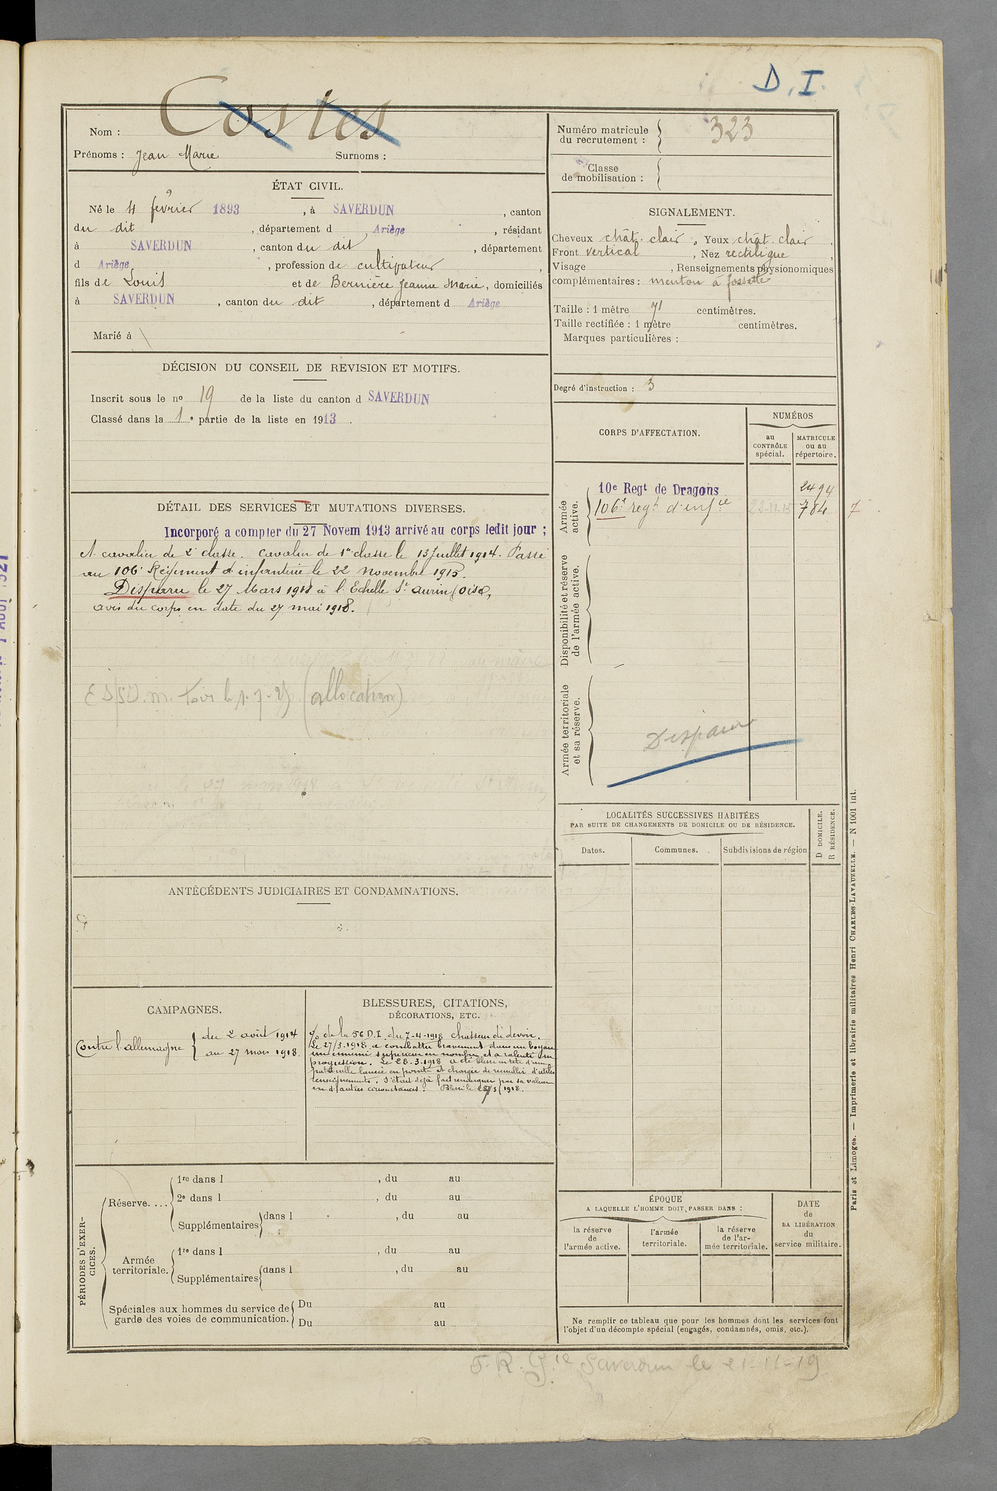 D.I.
Nom : Costes
Prénoms : Jean Marie Surnoms :
ÉTAT CIVIL.
Né le 4 février 1893, à SAVERDUN, canton
du dit, département d Ariège, résidant
à SAVERDUN, canton du dit, département
d Ariège, profession de cultivateur,
fils de Louis et de Bernière Jeanne Marie, domiciliés
à SAVERDUN, canton du dit, départem᷊ent d Ariège
Marié à
DÉCISION DU CONSEIL DE RÉVISION ET MOTIFS.
Inscrit sous le no 19 de la liste du canton d SAVERDUN
Classé dans la 1e partie de la liste en 1913.
DÉTAIL DES SERVICES ET MUTATIONS DIVERSES.
Incorporé a compter du 27 Novem 1913 arrivé au corps ledit jour ;
et cavalier de 2e classe. Cavalier de 1re classe le 13 juillet 1914. Passé
au 106e Régiment d'infanterie le 22 novembre 1915.
Disparu le 27 Mars 1918 à l'Echelle St Aurin (Oise),
avis du corps en date du 27 mai 1918.
(allocation)
ANTÉCÉDENTS JUDICIAIRES ET CONDAMNATIONS.
CAMPAGNES.
Contre l'allemagne { du 2 août 1914
au 27 mars 1918.
BLESSURES, CITATIONS,
DÉCORATIONS, ETC.
de la 56 D.I. du 7-11-1918 Chasseur de devoir.
Le 27/3.1918 a combattu bravement dans un boyau
un ennemi supérieur en nombre et a ralenti sa
progression. Le 28.3.1918 a été blessé en tête d'une
patrouille lancée en pointe et chargée de recueillir d'utiles
renseignements. S'était déjà fait remarquer par sa valeur
en d'autres circonstances. Blessé le 28/3/1918.
PÉRIODES D'EXERCICES.
Réserve.... 1re dans l , du au
2e dans l , du au
Supplémentaires dans l , du au
Armée territoriale. 1re dans l , du au
Supplémentaires dans l , du au
Spéciales aux hommes du service de Du au
garde des voies de communication. Du au
Numéro matricule
du recrutement : 323
Classe
de mobilisation :
SIGNALEMENT.
Cheveux chât. clair, Yeux chât. clair,
Front vertical, Nez rectiligne,
Visage , Renseignements physionomiques
complémentaires : menton à fossette
Taille : 1 mètre 71 centimètres.
Taille rectifiée : 1 mètre centimètres.
Marques particulières :
Degré d'instruction : 3
CORPS D'AFFECTATION.
NUMÉROS
au CONTRÔLE spécial.
MATRICULE ou au répertoire.
Armée active.
10e Regt de Dragons 2494
106e regt d'infie 22.11.15 784
Disponibilité et réserve de l'armée active.
Armée territoriale et sa réserve.
Disparu
LOCALITÉS SUCCESSIVES HABITÉES
PAR SUITE DE CHANGEMENTS DE DOMICILE OU DE RÉSIDENCE.
Dates. Communes. Subdivisions de région D DOMICILE. R RÉSIDENCE.
ÉPOQUE
A LAQUELLE L'HOMME DOIT PASSER DANS :
la réserve de l'armée active.
l'armée territoriale.
la réserve de l'armée territoriale.
DATE de SA LIBÉRATION du service militaire.
Ne remplir ce tableau que pour les hommes dont les services font
l'objet d'un décompte spécial (engagés, condamnés, omis, etc.).
Paris et Limoges. — Imprimerie et librairie militaires Henri CHARLES-LAVAUZELLE. — N 1001 int.
Saverdun le 21-11-19